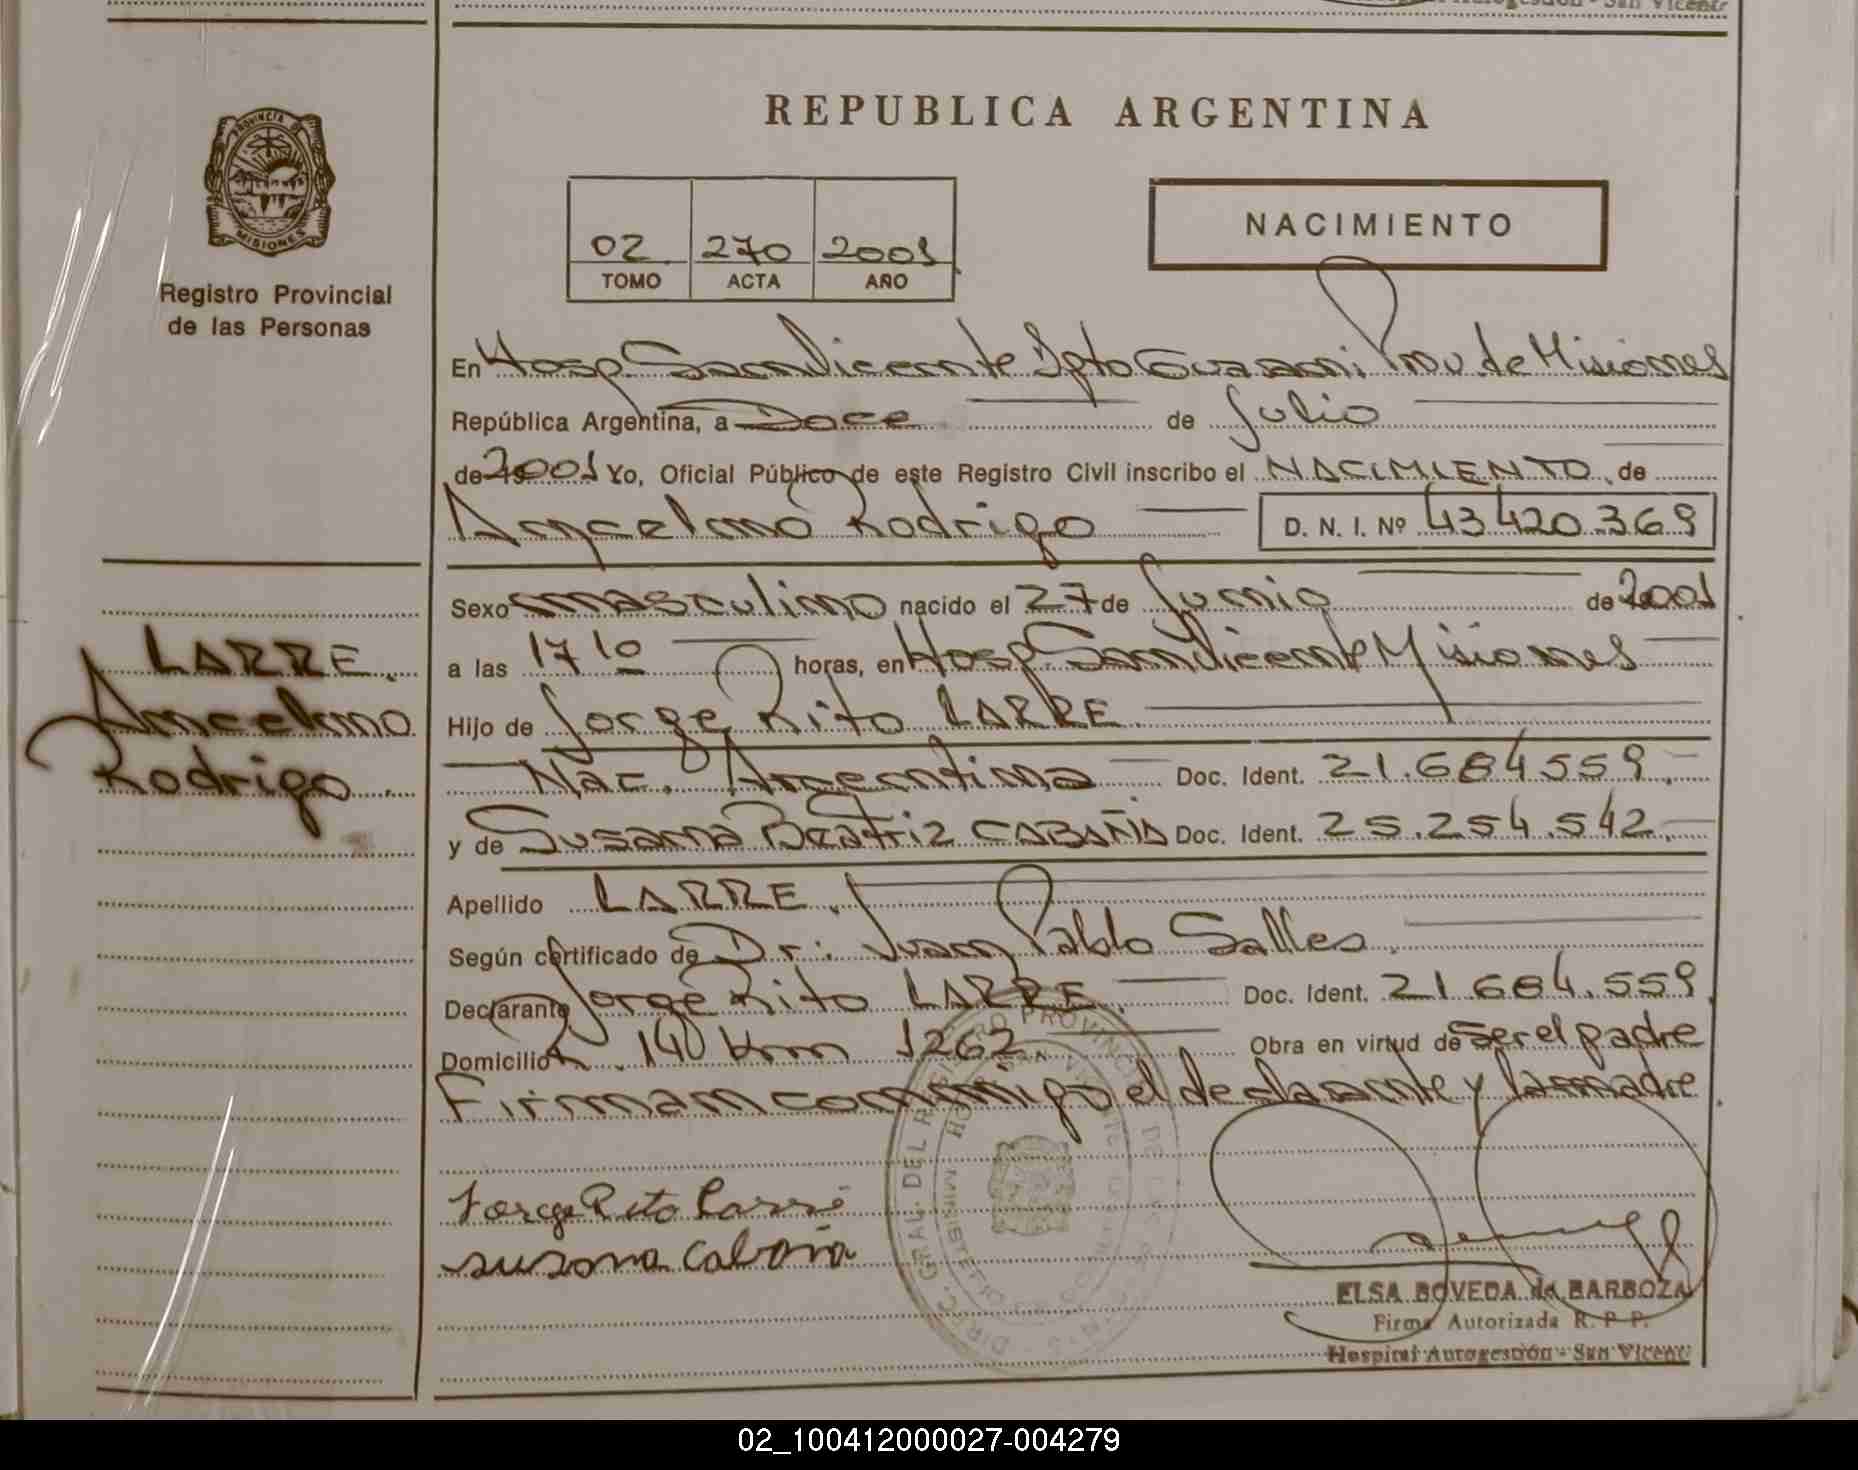 REPUBLICA ARGENTINA
PROVINCIA DE
MISIONES
Registro Provincial
de las Personas
02 270 2001
TOMO ACTA AÑO
NACIMIENTO
En Hosp. San Vicente Dpto Guarani Prov. de Misiones
República Argentina, a Doce de Julio
de 2001 Yo, Oficial Público de este Registro Civil inscribo el NACIMIENTO de
Ancelmo Rodrigo D. N. I. Nº 43420369
Sexo masculino nacido el 27 de Junio de 2001
a las 17 10 horas, en Hosp. San Vicente Misiones
Hijo de Jorge Rito LARRE
Nac. Argentina Doc. Ident. 21.684559.
y de Susana Beatriz CABAÑA Doc. Ident. 25.254.542.
Apellido LARRE.
Según certificado de Dr: Juan Pablo Salles.
Declarante Jorge Rito LARRE. Doc. Ident. 21684.559
Domicilio km 1262 Obra en virtud de ser el padre
Firman conmigo el declarante y la madre.
LARRE.
Ancelmo
Rodrigo.
Jorge Rito Larré
susana Cabaña
ELSA BOVEDA de BARBOZA
Firma Autorizada R. P. P.
Hospital Autogestión - San Vicente
02_100412000027-004279